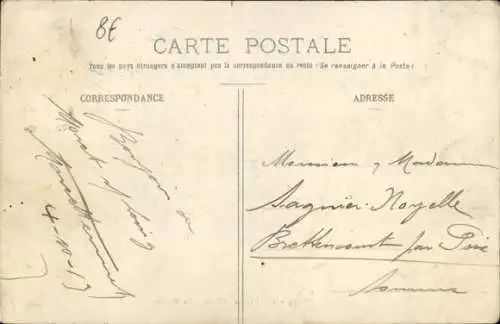 8E
CARTE POSTALE
Tous les pays étrangers n'acceptant pas la correspondance au recto (Se renseigner à la Poste)
CORRESPONDANCE
ADRESSE
Bonjour de
4-10-13
Monsieur, Madame
Sagnier-Noyelle
Brettencourt par Poix
Somme